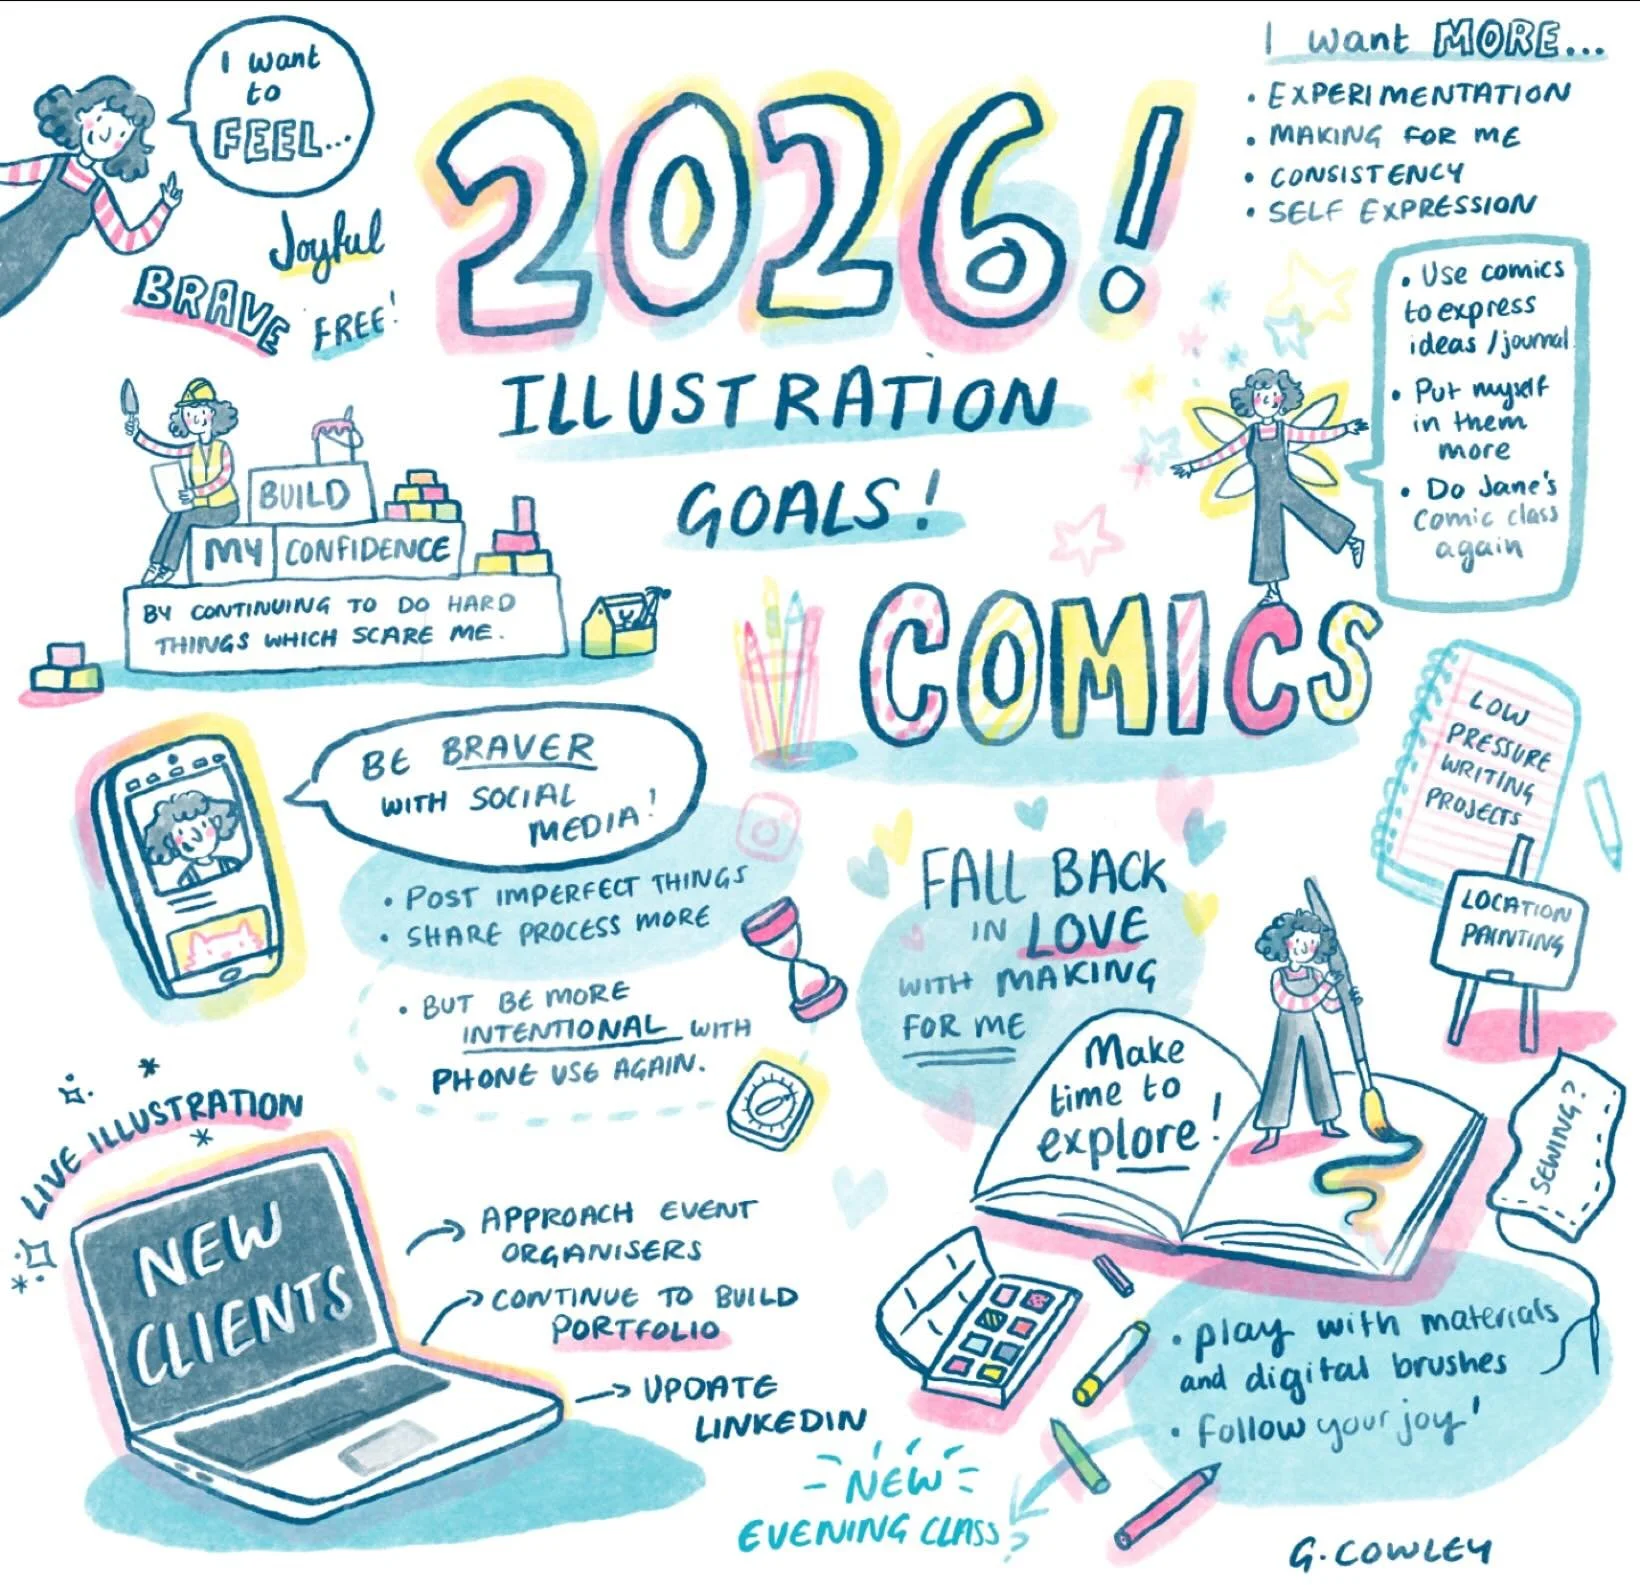 I want
to
FEEL...
Joyful
BRAVE
FREE!
2026!
ILLUSTRATION
GOALS!
I want MORE...
• EXPERIMENTATION
• MAKING FOR ME
• CONSISTENCY
• SELF EXPRESSION
• Use comics
to express
ideas / journal
• Put myself
in them
more
• Do Jane's
Comic class
again
BUILD
MY CONFIDENCE
BY CONTINUING TO DO HARD
THINGS WHICH SCARE ME.
COMICS
LOW
PRESSURE
WRITING
PROJECTS
LOCATION
PAINTING
BE BRAVER
WITH SOCIAL
MEDIA!
• POST IMPERFECT THINGS
• SHARE PROCESS MORE
• BUT BE MORE
INTENTIONAL WITH
PHONE USE AGAIN.
FALL BACK
IN LOVE
WITH MAKING
FOR ME
Make
time to
explore!
SEWING?
LIVE ILLUSTRATION
NEW
CLIENTS
APPROACH EVENT
ORGANISERS
CONTINUE TO BUILD
PORTFOLIO
UPDATE
LINKEDIN
• play with materials
and digital brushes
• Follow your joy!
NEW
EVENING CLASS?
G.COWLEY